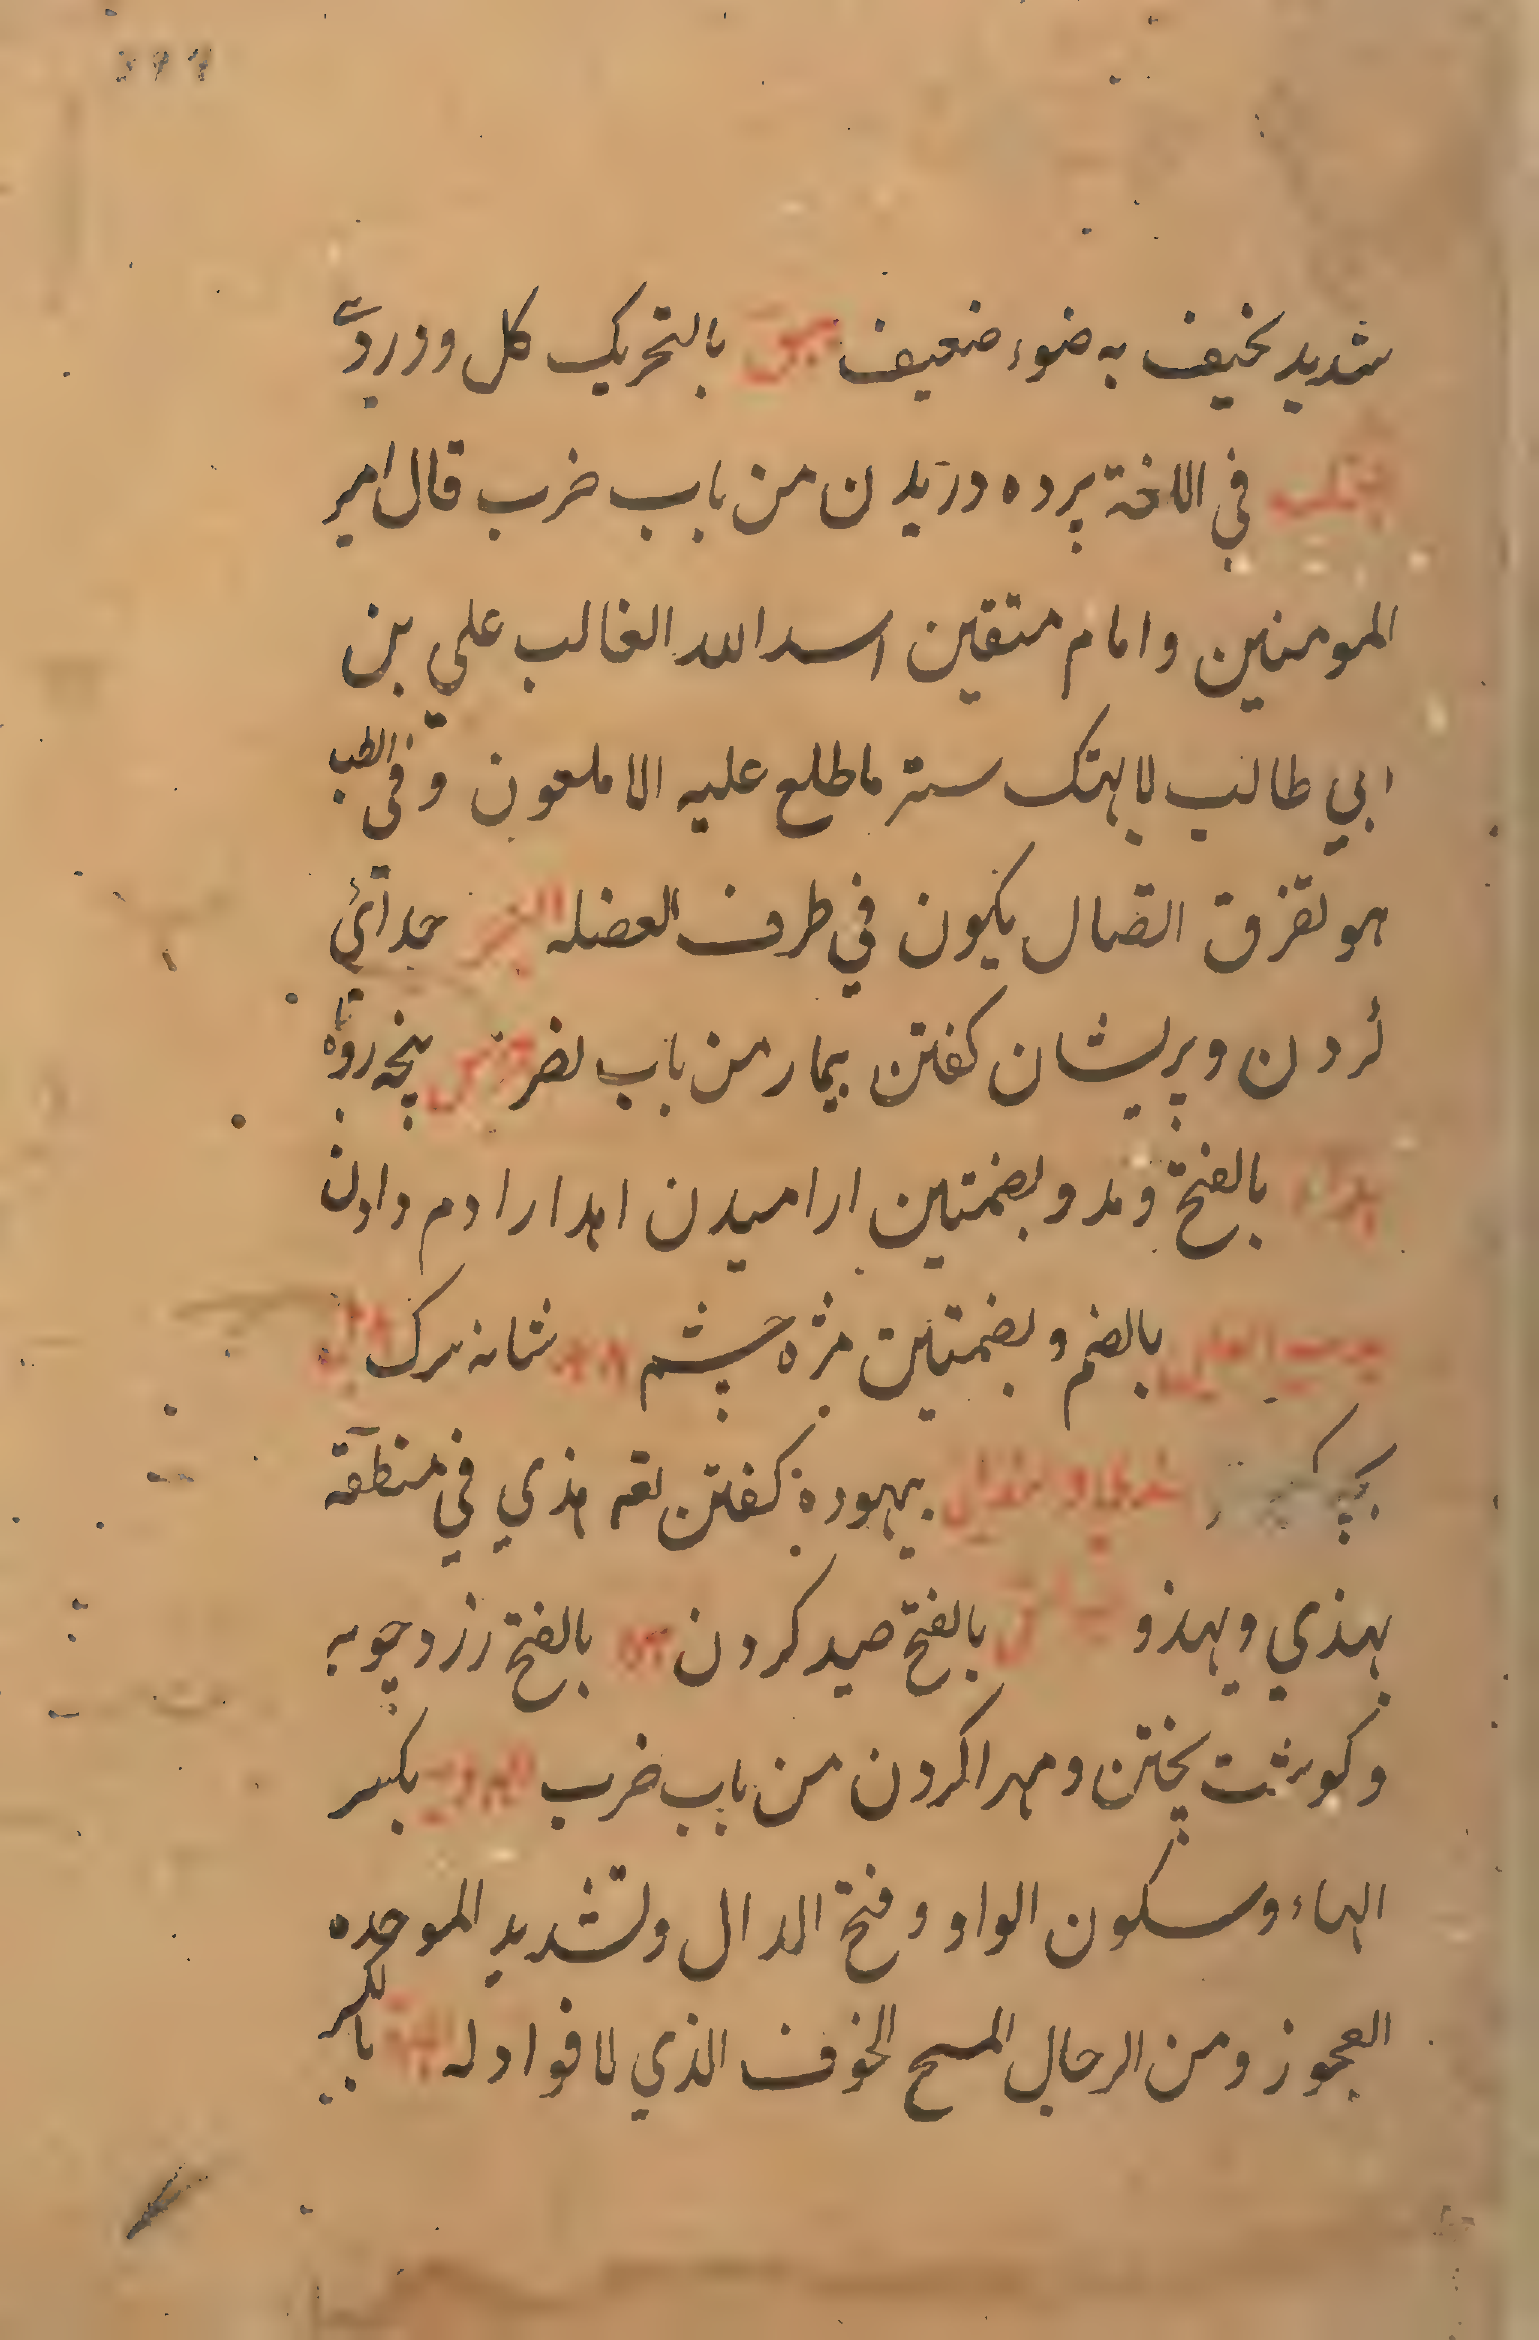 شديد يخيف به ضوء ضعيف بالتحريك كل و دردي
في اللغة پرده دريدن من باب ضرب قال امير
المومنين و امام متقين اسد الله الغالب علي بن
ابي طالب لا يهتك ستر ما طلع عليه الا ملعون و في الطب
هو تفرق اتصال يكون في طرف العضله جدائي
كردن و پريشان كفتن بيمار من باب نصر پنجه روباه
بالفتح و مد و بضمتين اراميدن اهدار ارام دادن
بالضم و بضمتين مژه چشم شانه سرك
بيهوده كفتن لغه هذي في منطقه
يهذي و يهذو بالفتح صيد كردن بالفتح زردچوبه
و كوشت پختن و مهرا كردن من باب ضرب بكسر
الهاء و سكون الواو و فتح الدال و تشديد الموحده
العجوز و من الرجال المسح الخوف الذي لا فواد له بالكسر